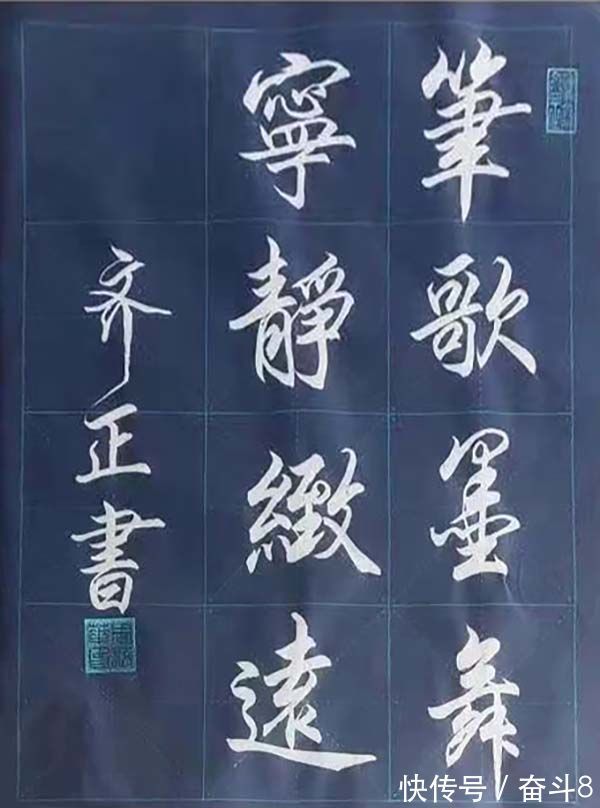 筆歌墨舞
寧靜緻遠
齐正書
快传号 / 奋斗8